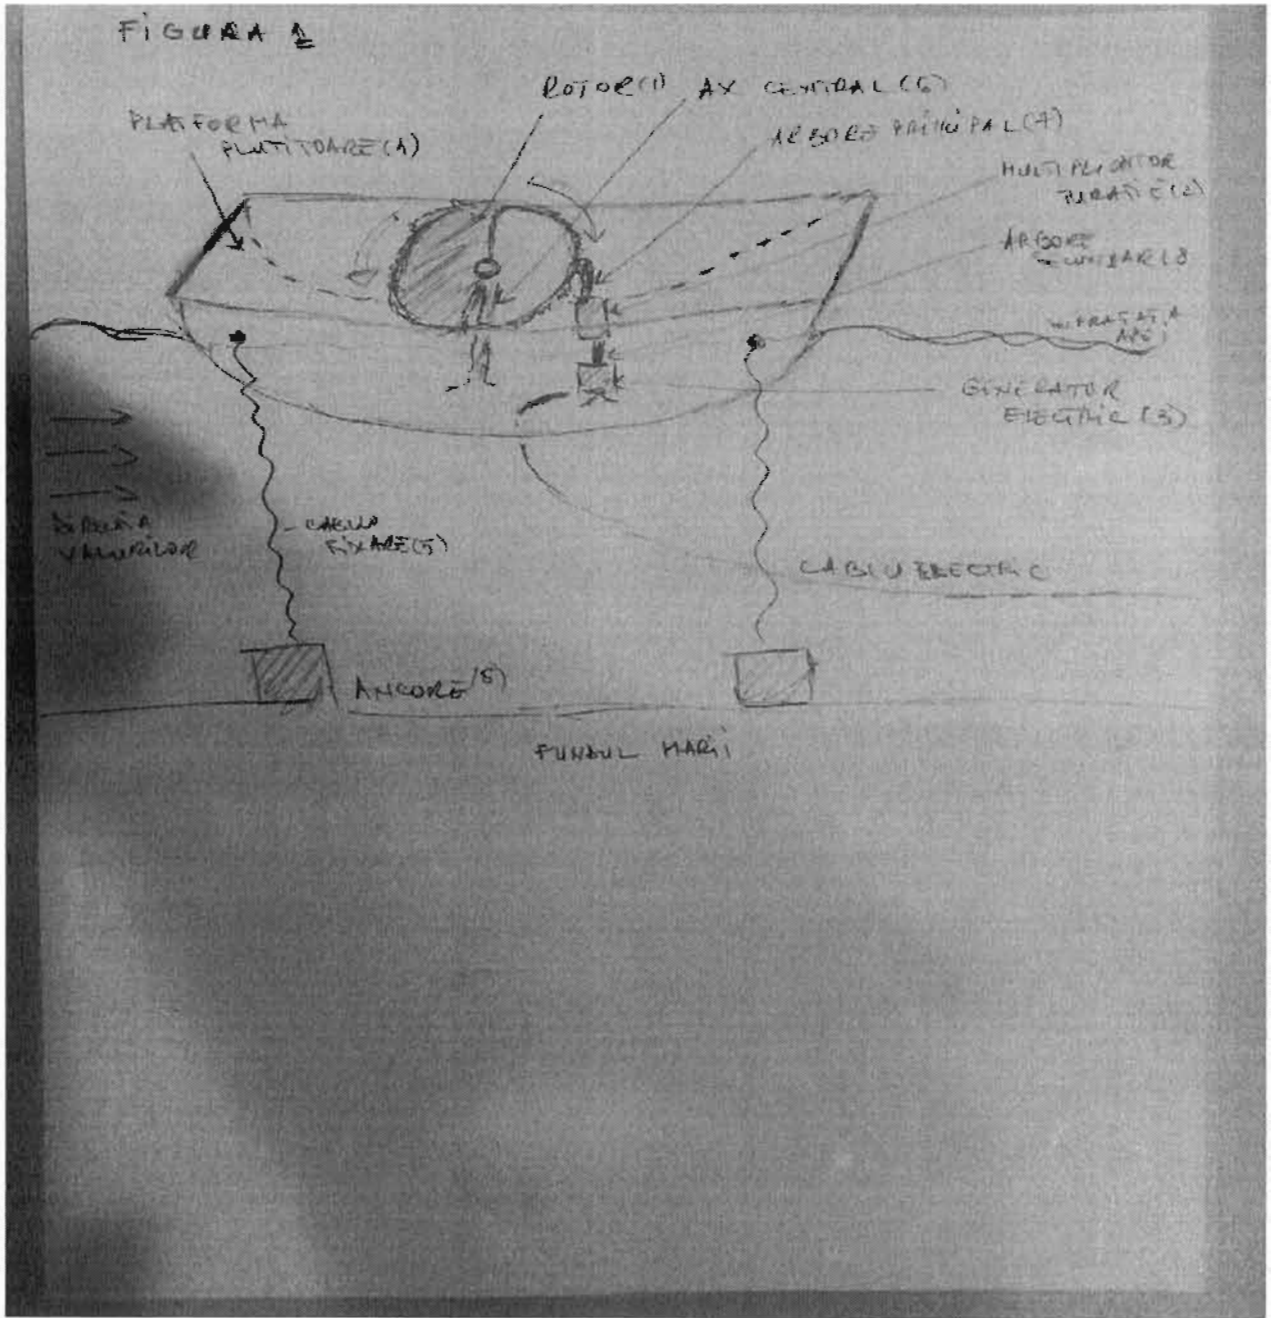 FIGURA 1
ROTOR(1) AX CENTRAL(6)
PLATFORMA
PLUTITOARE(4)
ARBORE PRINCIPAL(7)
MULTIPLICATOR
TURATIE(2)
ARBORE
SECUNDAR(8
SUPRAFATA
APEI
GENERATOR
ELECTRIC(3)
DIRECTIA
VALURILOR
CABLU
FIXARE(5)
CABLU ELECTRIC
ANCORE
FUNDUL MARII